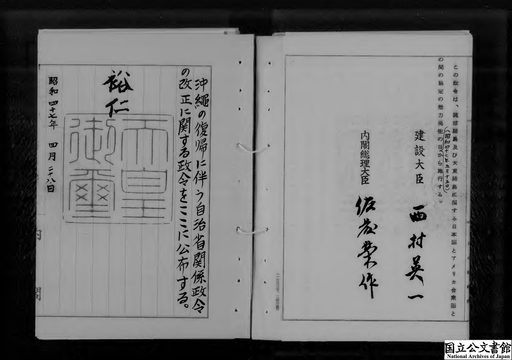 この政令は、琉球諸島及び大東諸島に関する日本国とアメリカ合衆国と
の間の協定の効力発生の日から施行する。
建設大臣 西村英一
内閣総理大臣 佐藤榮作
沖縄の復帰に伴う自治省関係政令
の改正に関する政令をここに公布する。
裕仁
天皇御璽
昭和四十七年 四月二十八日
内閣
国立公文書館
National Archives of Japan